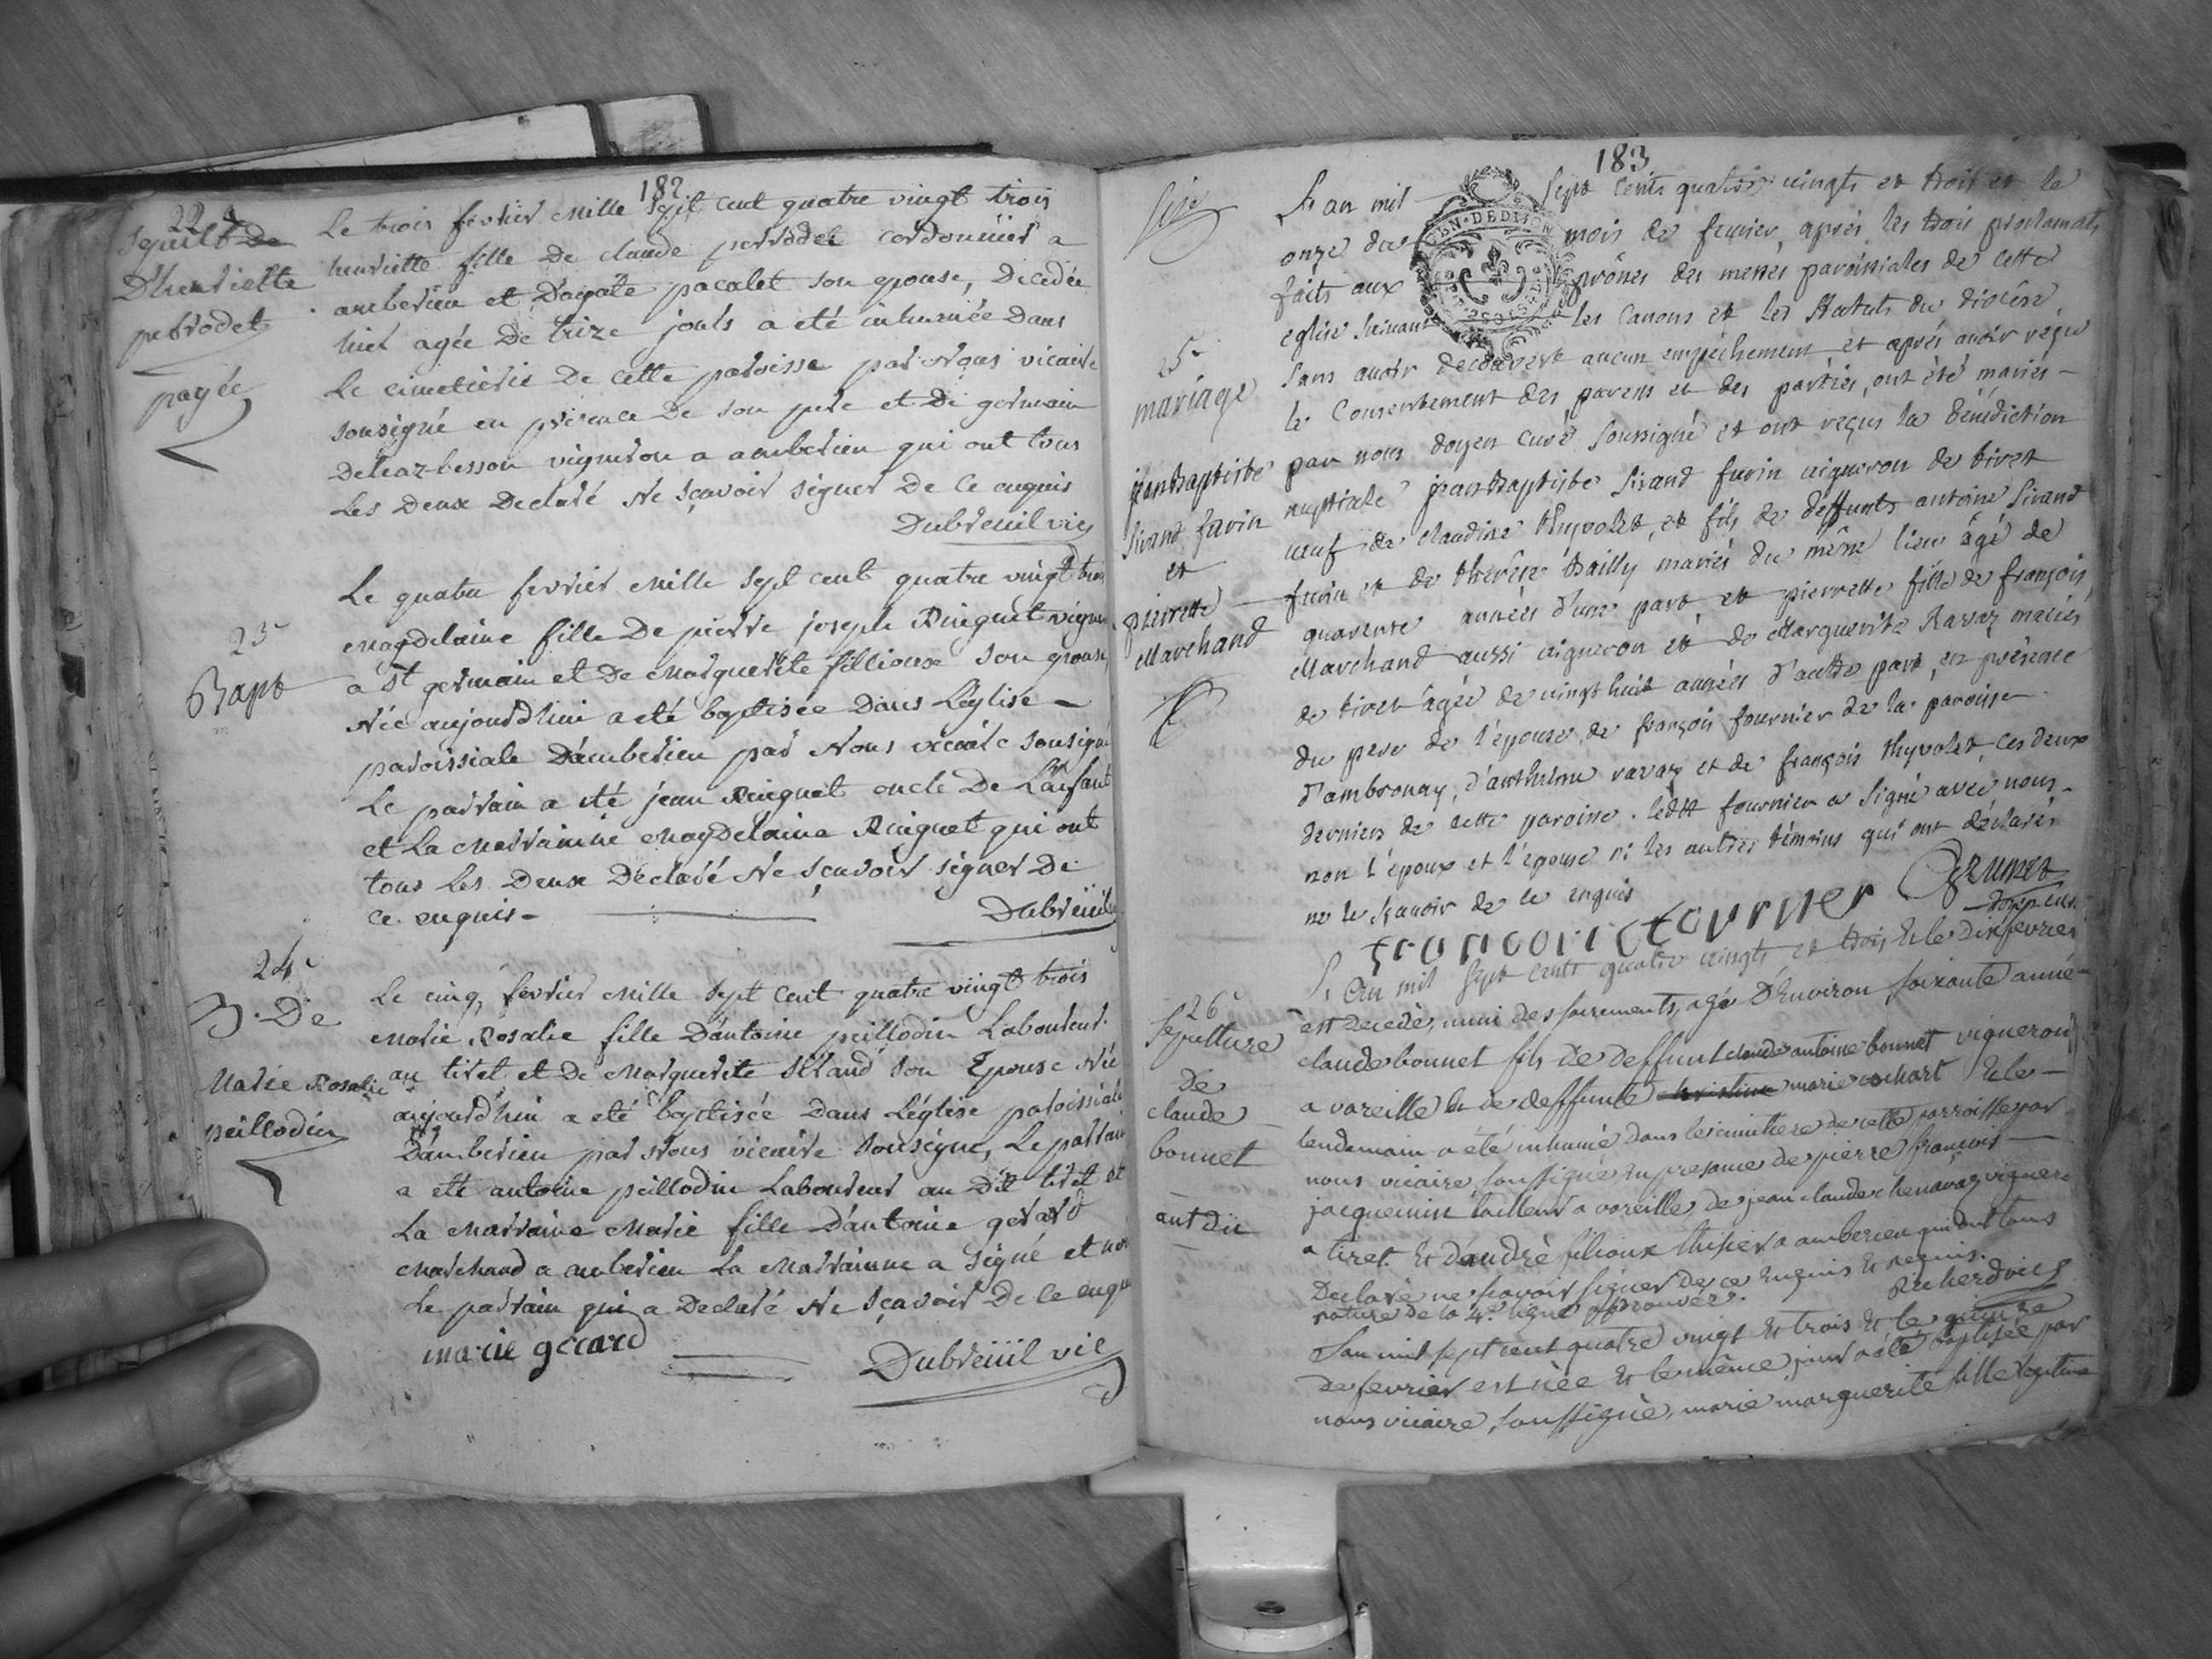 182.
22
Sepult de
D'henriette
perrodet
payée
Le trois février mille sept cent quatre vingt trois
henriette fille de claude perrodet cordonniier a
amberieu et D'agate pacalet son epouse, Decedée
hier agée De treize jours a été inhumée Dans
Le cimetierre De cette paroisse par Nous vicaire
sousigné en présence De son pere et De germain
Deleaz-besson vigneron a amberieu qui ont tous
Les Deux Declaré Ne sçavoir signer De ce enquis
Dubreuil vic
23e
Bapt
Le quatre fevrier mille sept cent quatre vingt trois
magdelaine fille De pierre joseph Ringuet vigne
a St germain et De marguerite fillioux son epouse,
Née aujourdhui a eté baptisée Dans L'église
paroissiale D'amberieu par Nous vicaire sousigné
Le parrain a eté jean Ringuet oncle De L'anfant
et La marrainne magdelaine Ringuet qui ont
tous Les Deux Declaré Ne sçavoir signer De
ce enquis -
Dubreüil
24e
B. De
Marie Rosalie
peillodin
Le cinq fevrier mille sept cent quatre vingt trois
marie Rosalie fille D'antoine peillodin Laboureur
au tiret et De marguerite Sirand son Epouse Née
aujourd'hui a eté baptisée Dans L'église paroissiale
D'amberieu par Nous vicaire sousigné, Le parrain
a eté antoine peillodin Laboureur au Dit tiret et
La marraine marie fille D'antoine gerard
marchand a amberieu La marrainne a signé et non
Le parrain qui a Declaré Ne sçavoir De ce enqu
marie gerard
Dubreüil vic
183
25e
mariage
jean Baptiste
Sirand furin
et
pierrette
Marchand
L'an mil sept cents quatre vingts et trois et le
onze du mois de fevrier, après les trois proclamats
faits aux prônes des messes paroissiales de cette
eglise suivant les Canons et les Statuts du diocèse
sans avoir decouvert aucun empêchement et après avoir reçu
le Consentement des parens et des parties, ont été mariés -
par nous doyen curé soussigné et ont reçus la bénédiction
nuptiale jean Baptiste Sirand furin vigneron de tiret
veuf de claudine thyvolet, et fils de deffunts antoine Sirand
furin et de therèse Bailly mariés du même lieu âgé de
quarente années d'une part, et pierrette fille de françois
Marchand aussi vigneron et de Marguerite Ravaz mariés
de tiret âgée de vingt huit années d'autre part, en présence
du pere de l'épouse, de françois fournier de la paroisse
d'ambronay, d'anthelme ravaz et de françois thyvolet, ces deux
derniers de cette paroisse. ledit fournier a signé avec nous
non l'époux et l'épouse ni les autres témoins qui ont déclarés
ne le sçavoir de ce enquis
francois fournier
26e
sepulture
De
claude
bonnet
ant dit
L'an mil sept cents quatre vingts et trois & le Dix fevrier
est decedé, muni des sacrements, agé D'environ soixante année
claude bonnet fils de deffunt claude antoine bonnet vigneron
a vareille & de deffunte christine marie cochart & le -
lendemain a été inhumé dans le cimetiere de cette parroisse par
nous vicaire soussigné en presance de pierre françois
jacquemin tailleur a vareille, de jean claude chenavaz vigneron
a tiret. & D'andré filioux thisier a amberieu qui ont tous
Declaré ne sçavoir signer de ce enquis & requis.
rature de la 4e ligne approuvée.
Richerd vic
L'an mil sept cent quatre vingt & trois & le quinze
de fevrier est née & le même jour a été baptisée par
nous vicaire soussigné, marie marguerite fille legitime